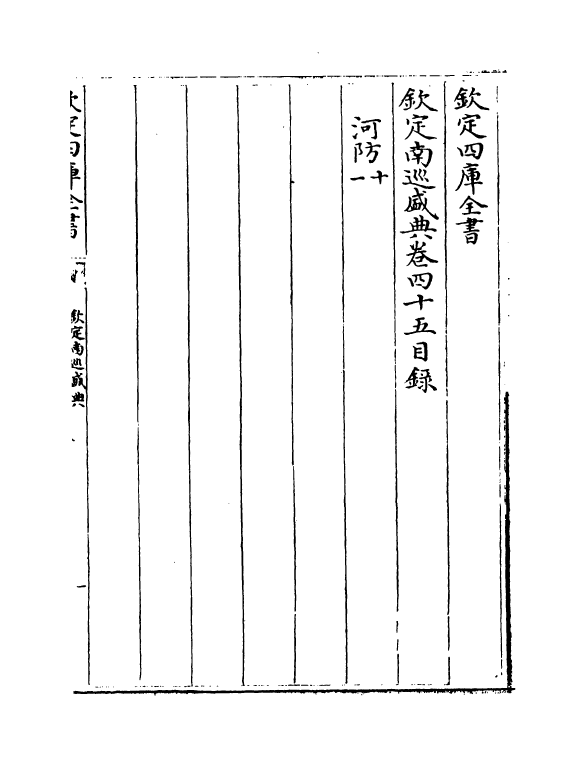 欽定四庫全書
欽定南巡盛典卷四十五目錄
河防十一
欽定四庫全書
欽定南巡盛典
一